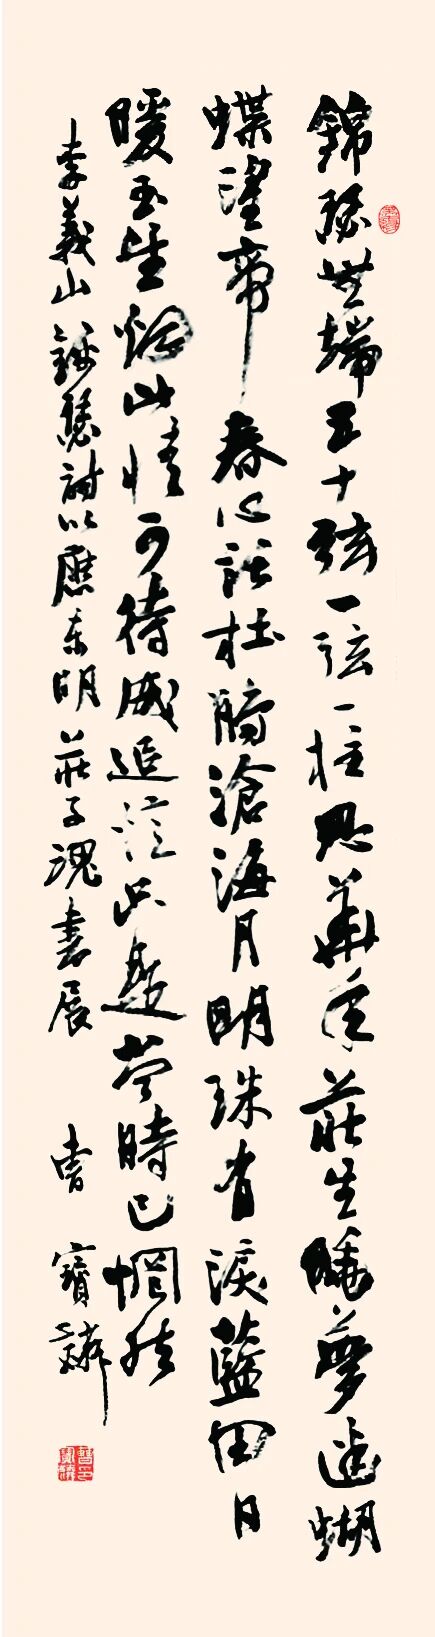 錦瑟無端五十弦一弦一柱思華年莊生曉夢迷蝴
蝶望帝春心託杜鵑滄海月明珠有淚藍田日
暖玉生烟此情可待成追憶只是當時已惘然
李義山錦瑟詩以應東明莊子魂書展 曹寶麟